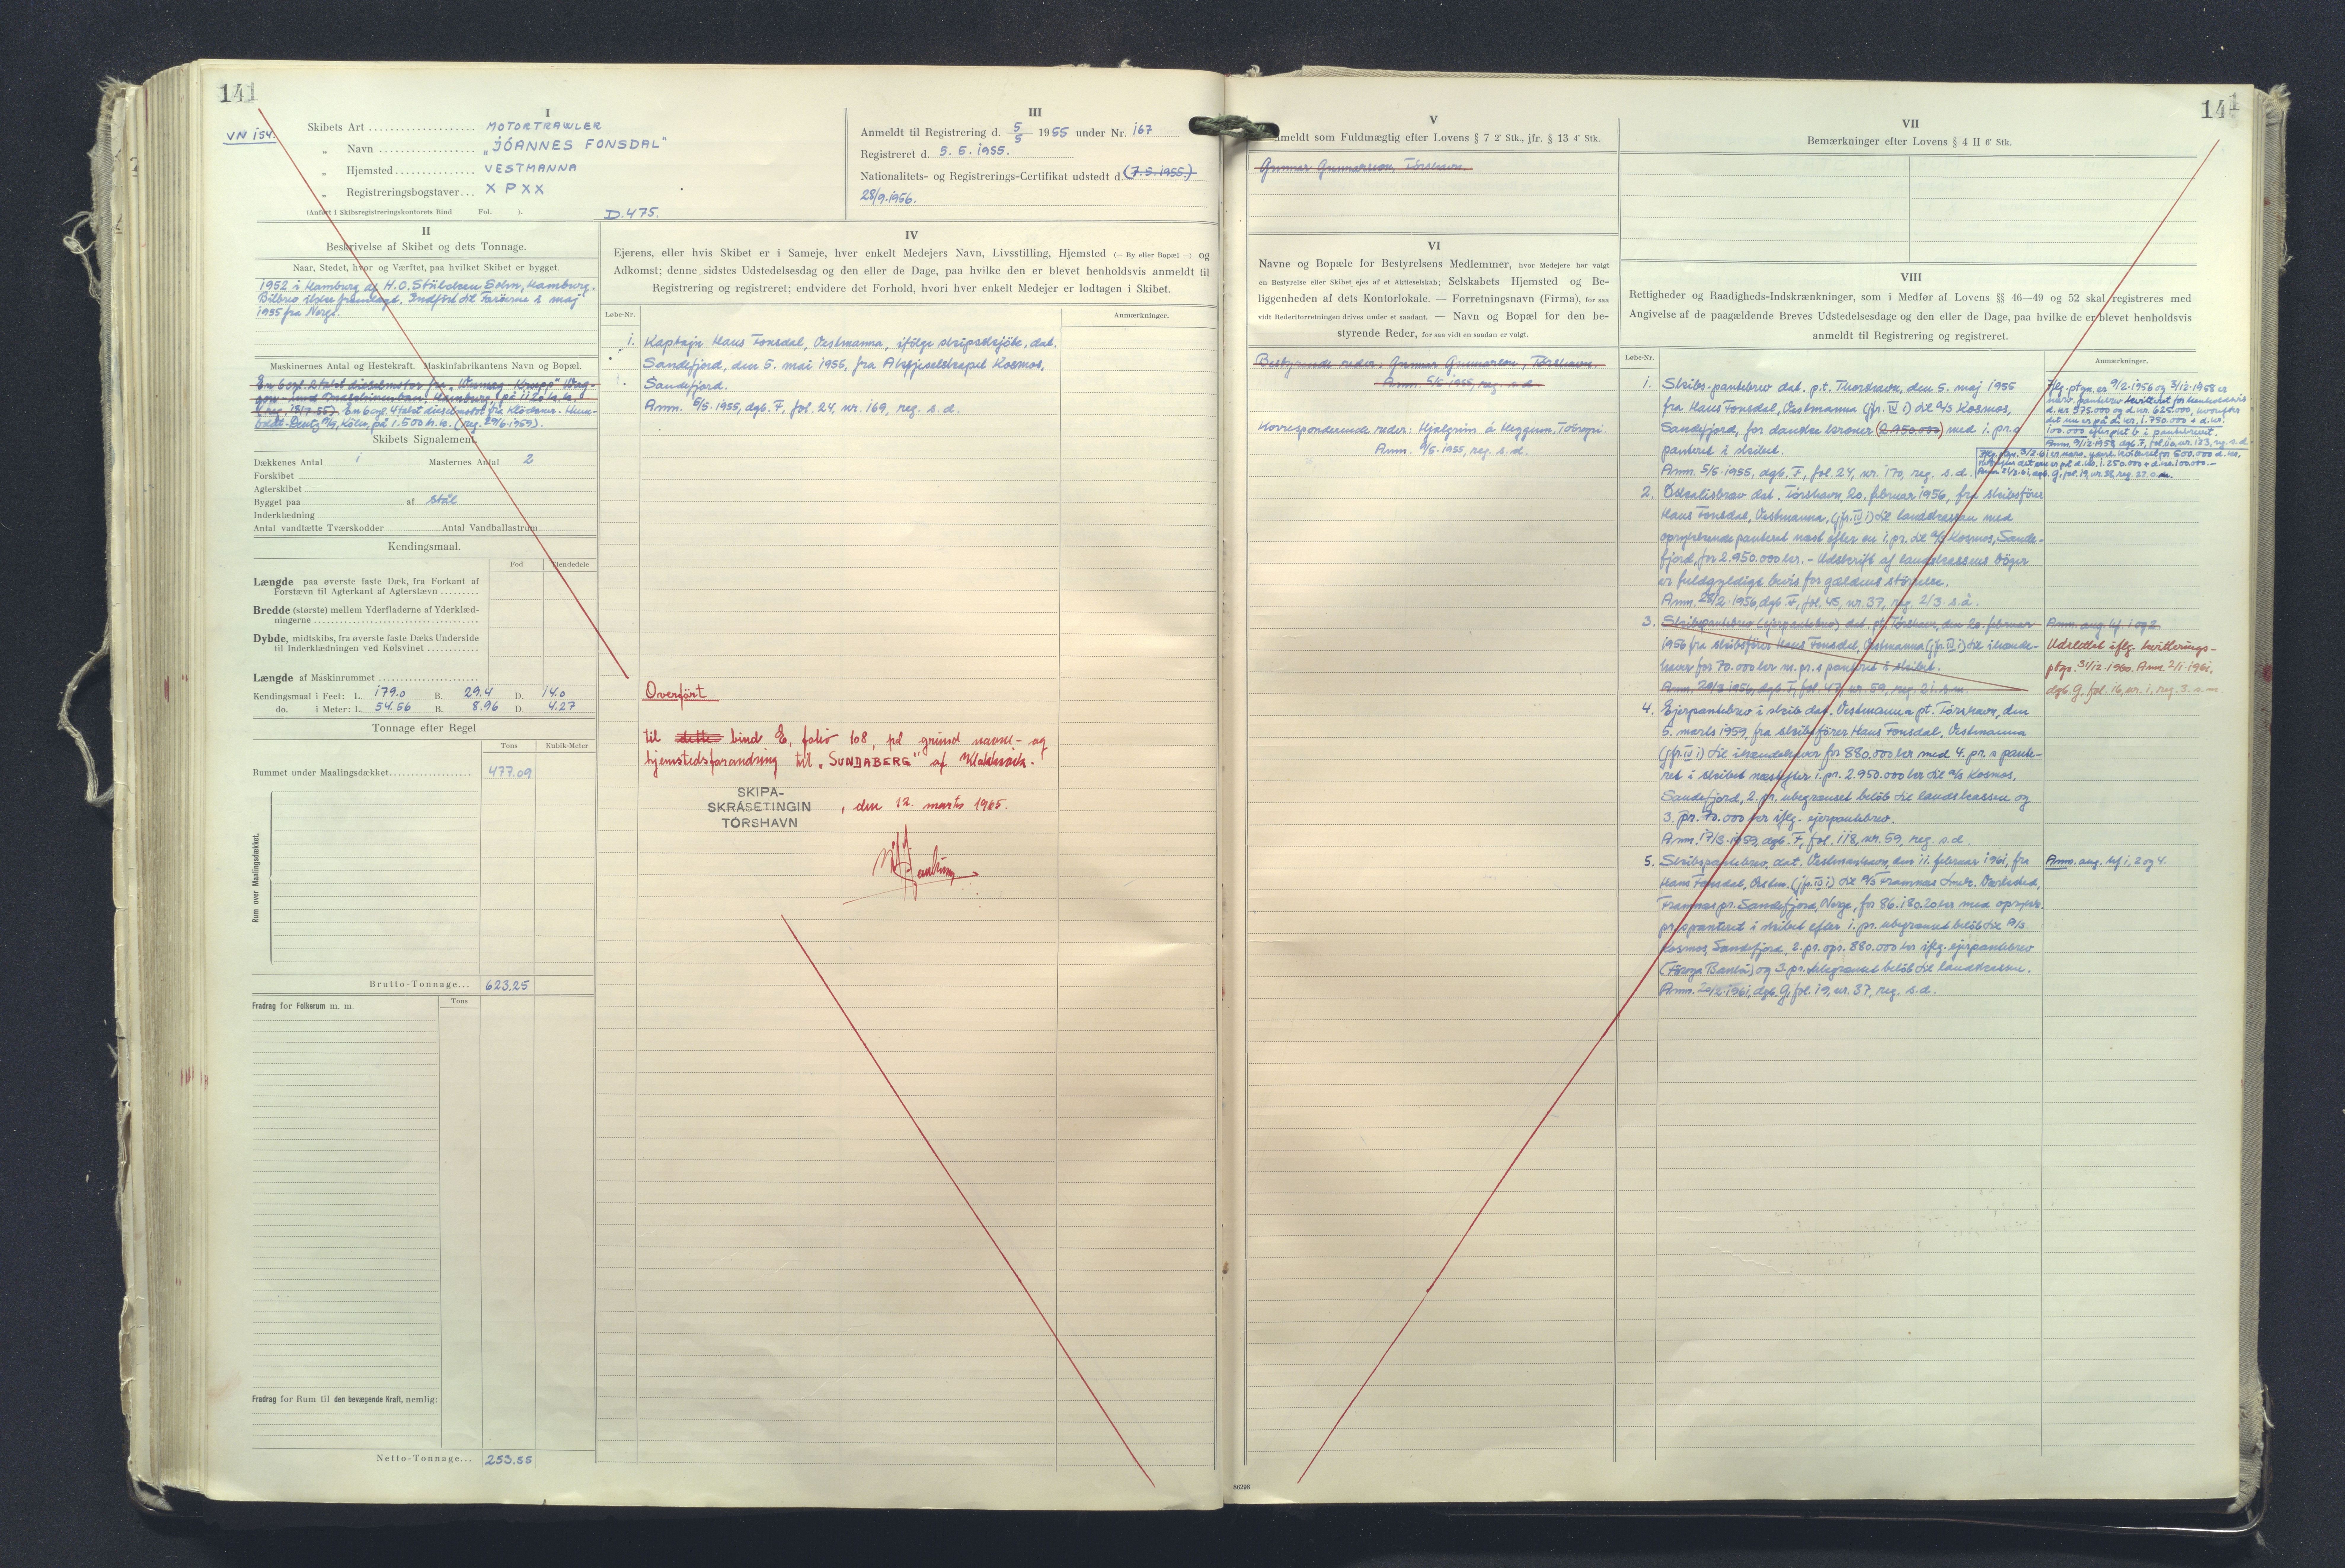 141
VN 154.
I
Skibets Art MOTORTRAWLER
„ Navn „JÓANNES FONSDAL"
„ Hjemsted VESTMANNA
„ Registreringsbogstaver... X P X X
(Anført i Skibsregistreringskontorets Bind Fol. ).
D.475.
III
Anmeldt til Registrering d. 5/5 1955 under Nr. 167
Registreret d. 5. 5. 1955.
Nationalitets- og Registrerings-Certifikat udstedt d. (7.5.1955.)
28/9.1956.
II
Beskrivelse af Skibet og dets Tonnage.
Naar, Stedet, hvor og Værftet, paa hvilket Skibet er bygget.
1952 i Hamburg af H.C. Stülcken Sohn, Hamburg.
Bilbrev ikke fremlagt. Indført til Færøerne i maj
1955 fra Norge.
Maskinernes Antal og Hestekraft. Maskinfabrikantens Navn og Bopæl.
En 6 cyl. 2 takt dieselmotor fra „Wumag Krupp" Wag-
gon- und Maschinenbau, Hamburg, på 1120 h.k.
En 6 cyl. 4 takt dieselmotor fra Klöckner-Hum-
boldt-Deutz A/G, Köln, på 1.500 h.k. (reg. 29/6 1959).
Skibets Signalement.
Dækkenes Antal 1 Masternes Antal 2
Forskibet
Agterskibet
Bygget paa af Stål
Inderklædning
Antal vandtætte Tværskodder Antal Vandballastrum
Kendingsmaal.
Fod Tiendedele
Længde paa øverste faste Dæk, fra Forkant af
Forstævn til Agterkant af Agterstævn
Bredde (største) mellem Yderfladerne af Yderklæd-
ningerne
Dybde, midtskibs, fra øverste faste Dæks Underside
til Inderklædningen ved Kølsvinet
Længde af Maskinrummet
Kendingsmaal i Feet: L. 179.0 B. 29.4 D. 14.0
do. i Meter: L. 54.56 B. 8.96 D. 4.27
Tonnage efter Regel
Tons Kubik-Meter
Rummet under Maalingsdækket 477.09
Rum over Maalingsdækket.
Brutto-Tonnage... 623.25
Fradrag for Folkerum m. m. Tons
Fradrag for Rum til den bevægende Kraft, nemlig:
Netto-Tonnage... 253.55
IV
Ejerens, eller hvis Skibet er i Sameje, hver enkelt Medejers Navn, Livsstilling, Hjemsted (— By eller Bopæl —) og
Adkomst; denne sidstes Udstedelsesdag og den eller de Dage, paa hvilke den er blevet henholdsvis anmeldt til
Registrering og registreret; endvidere det Forhold, hvori hver enkelt Medejer er lodtagen i Skibet.
Løbe-Nr. Anmærkninger.
1. Kaptajn Hans Fonsdal, Vestmanna, ifølge skipsskjöte, dat.
Sandefjord, den 5. mai 1955, fra Aksjeselskapet Kosmos,
Sandefjord.
Anm. 5/5. 1955, dgb. F, fol. 24, nr. 169, reg. s. d.
Overført
til dette bind E, folio 108, på grund navne- og
hjemstedsforandring til „SUNDABERG" af Klaksvik.
SKIPA-
SKRÁSETINGIN
TÓRSHAVN
, den 12. marts 1965.
141
V
Anmeldt som Fuldmægtig efter Lovens § 7 2' Stk., jfr. § 13 4' Stk.
Gunnar Gunnarsson, Tórshavn.
VI
Navne og Bopæle for Bestyrelsens Medlemmer, hvor Medejere har valgt
en Bestyrelse eller Skibet ejes af et Aktieselskab; Selskabets Hjemsted og Be-
liggenheden af dets Kontorlokale. — Forretningsnavn (Firma), for saa
vidt Rederiforretningen drives under et saadant. — Navn og Bopæl for den be-
styrende Reder, for saa vidt en saadan er valgt.
Bestyrende reder: Gunnar Gunnarsson, Tórshavn.
Anm. 5/5 1955, reg. s. d.
Korresponderende reder: Hjalgrim á Heygum, Toftegri.
Anm. 9/5. 1955, reg. s. d.
VII
Bemærkninger efter Lovens § 4 II 6' Stk.
VIII
Rettigheder og Raadigheds-Indskrænkninger, som i Medfør af Lovens §§ 46—49 og 52 skal registreres med
Angivelse af de paagældende Breves Udstedelsesdag og den eller de Dage, paa hvilke de er blevet henholdsvis
anmeldt til Registrering og registreret.
Løbe-Nr. Anmærkninger.
1. Skibs-pantebrev dat. p.t. Thorshavn, den 5. maj 1955
fra Hans Fonsdal, Vestmanna (jfr. IV 1) til A/S Kosmos,
Sandefjord, for danske kroner (2.950.000) med 1. pr. a
panteret i skibet.
Anm. 5/5 1955, dgb. F, fol. 24, nr. 170, reg. s. d.
Iflg. ptgn. er 9/2.1956 og 3/12.1958 er
nærv. pantebrev kvitteret for henholdsvis
d. kr 575.000 og d. kr. 625.000, hvorefter
det nu er på d. kr. 1.750.000 + d. kr.
100.000 efter pkt 6 i pantebrevet.
Anm. 9/12.1958, dgb. F, fol. nr. 183, reg. s. d.
2. Obtalisbrev dat. Tórshavn, 20. februar 1956, fra skibsfører
Hans Fonsdal, Vestmanna, (jfr. IV 1) til landskassen med
oprykkende panteret næst efter en 1. pr. til A/S Kosmos, Sande-
fjord, for 2.950.000 kr. - Udskrift af landskassens bøger
er fuldgyldigt bevis for gældens størrelse.
Anm. 28/2. 1956, dgb. F, fol. 45, nr. 37, reg. 2/3. s. å.
3. Skibspantebrev (ejerpantebrev) dat. pt. Tórshavn, den 20. februar
1956 fra skibsfører Hans Fonsdal, Vestmanna (jfr. IV 1) til ihænde-
haver for 70.000 kr m. pr. s panteret i skibet.
Anm. 20/3 1956, dgb. F, fol. 47, nr. 59, reg. 21. s. m.
Anm. ang. hf. 1 og 2
Udslettet iflg. kvitterings-
ptgn. 31/12.1960. Anm. 2/1.1961,
dgb. G, fol. 16, nr. 1, reg. 3. s. m.
4. Ejerpantebrev i skib dat. Vestmanna pt. Tórshavn, den
5. marts 1959, fra skibsfører Hans Fonsdal, Vestmanna
(jfr. IV 1) til ihændehaver for 880.000 kr med 4. pr. s pante-
ret i skibet næstefter 1. pr. 2.950.000 kr til A/S Kosmos,
Sandefjord, 2. pr. ubegrænset beløb til landskassen og
3. pr. 70.000 kr iflg. ejerpantebrev.
Anm. 17/3. 1959, dgb. F, fol. 118, nr. 59, reg. s. d.
5. Skibspantebrev, dat. Vestmanhavn, den 11. februar 1961, fra
Hans Fonsdal, Vestm. (jfr. IV 1) til A/S Framnæs mek. Værksted,
Framnæs pr. Sandefjord, Norge, for 86.180.20 kr med oprykk.
pr. panteret i skibet efter 1. pr. ubegrænset beløb til A/S
Kosmos, Sandefjord, 2. pr. opr. 880.000 kr iflg. ejerpantebrev
(Føroya Banki) og 3. pr. ubegrænset beløb til landskassen.
Anm. 20/2.1961, dgb. G, fol. 19, nr. 37, reg. s. d.
Anm. ang. hf 1, 2 og 4.